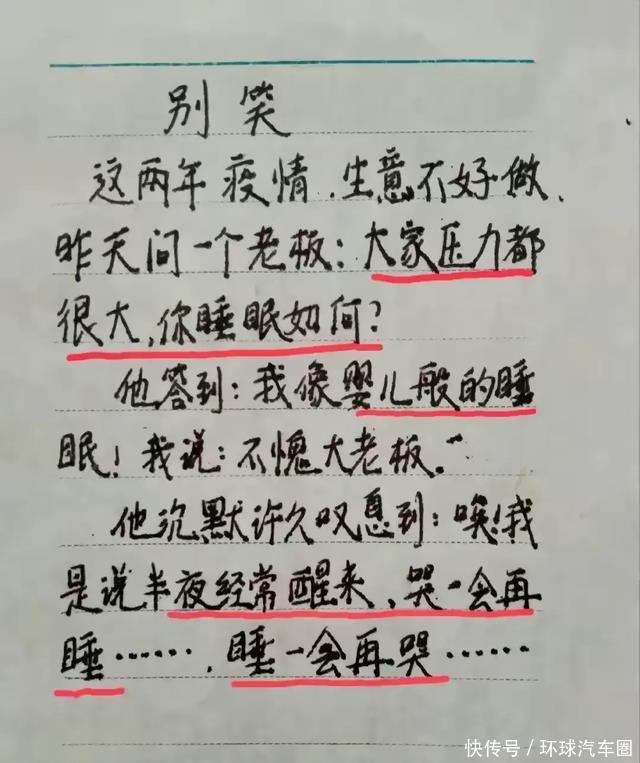 别笑
这两年疫情,生意不好做、
昨天问一个老板:大家压力都
很大,你睡眠如何?
他答到:我像婴儿般的睡
眠!我说:不愧大老板。
他沉默许久叹息到:唉!我
是说半夜经常醒来,哭一会再
睡……,睡一会再哭……
快传号/环球汽车圈